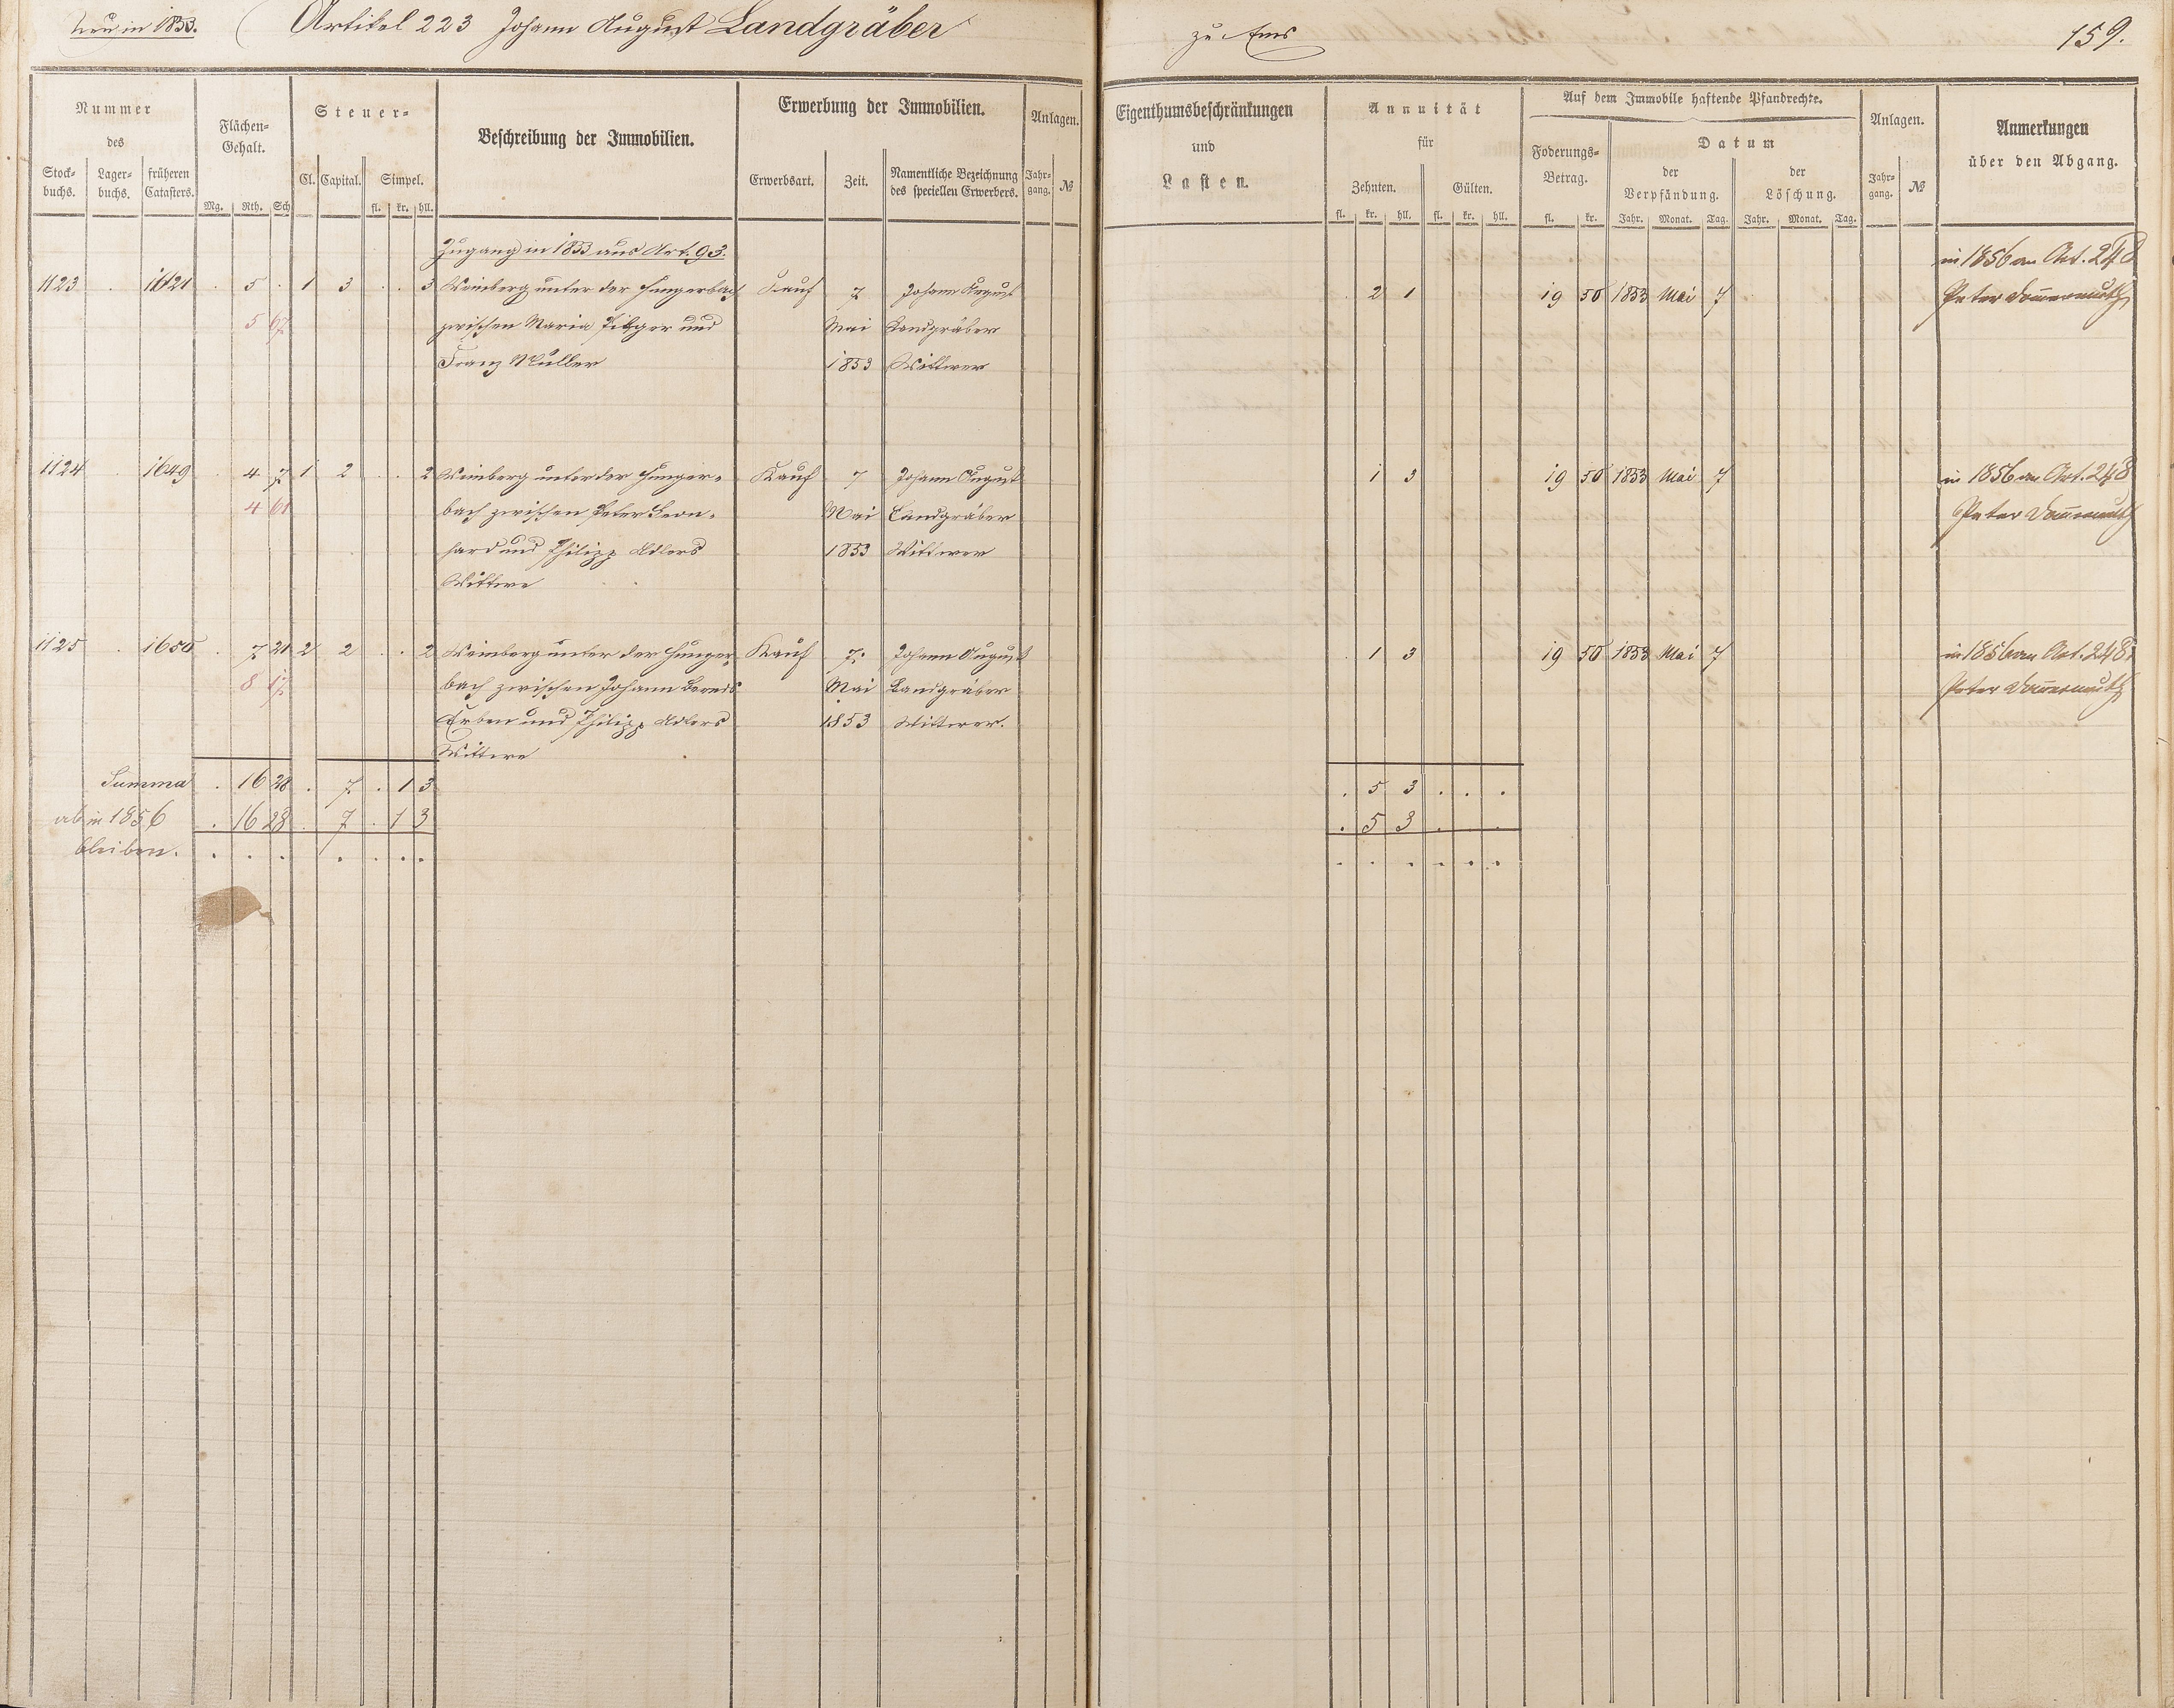 neu in 1853.
Artikel 223 Johann August Landgräber
zu Ems
159.
Nummer
des
Stock-
buchs.
Lager-
buchs.
früheren
Catasters.
Flächen-
Gehalt.
Mg. Rth. Sch
Steuer-
Cl. Capital. Simpel.
fl. kr. hll.
Beschreibung der Immobilien.
Erwerbung der Immobilien.
Erwerbsart. Zeit.
Namentliche Bezeichnung
des speciellen Erwerbers.
Anlagen.
Jahr-
gang. №
Eigenthumsbeschränkungen
und
Lasten.
Annuität
für
Zehnten. Gülten.
fl. kr. hll. fl. kr. hll.
Auf dem Immobile haftende Pfandrechte.
Foderungs-
Betrag.
fl. kr.
Datum
der
Verpfändung.
Jahr. Monat. Tag.
der
Löschung.
Jahr. Monat. Tag.
Anlagen.
Jahr-
gang. №
Anmerkungen
über den Abgang.
Zugang in 1853 aus Art. 93.
1123 . 1621 . 5 . 1 3 . . 3 Weinberg unter der Hungerbach Kauf 7 Johann August . 2 1 19 50 1853 Mai 7
5 67 zwischen Maria Pilger und Mai Landgräber
Franz Müller 1853 Wittwer
in 1856 an Art. 248
Peter
1124 . 1649 . 4 7 1 2 . . 2 Weinberg unter der Hunger- Kauf 7 Johann August 1 3 19 50 1853 Mai 7
4 61 bach zwischen Peter Leon- Mai Landgräber
hard und Philipp Adlers 1853 Wittwer
Wittwe
in 1856 an Art. 248
Peter
1125 . 1650 . 7 21 2 2 . . 2 Weinberg unter der Hunger- Kauf 7. Johann August . 1 3 19 50 1853 Mai 7
8 17 bach zwischen Johann Mai Landgräber
Erben und Philipp Adlers 1853 Wittwer.
Wittwe
in 1856 an Art. 248
Peter
Summa . 16 28 . 7 . 1 3 . 5 3 . . .
ab in 1856 . 16 28 . 7 . 1 3 . 5 3 . . .
bleiben. . . . . . . . . . . . . .